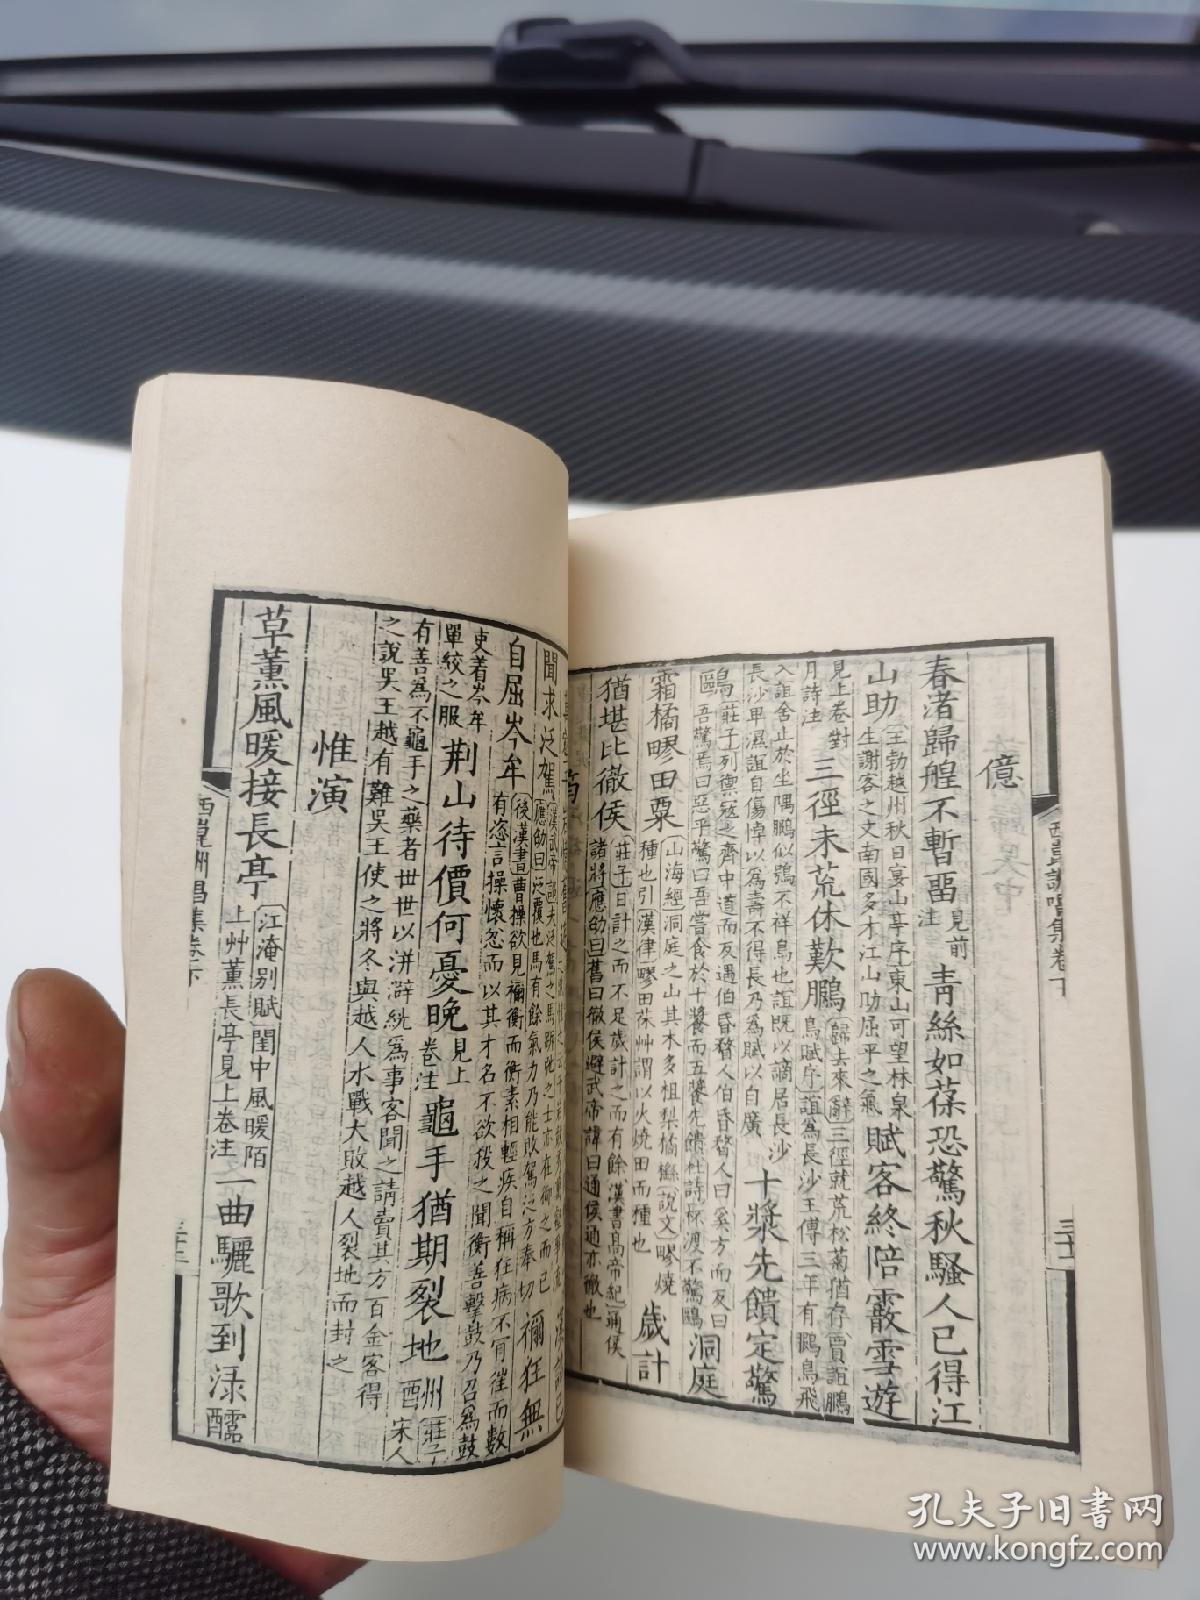 億
春渚歸艎不暫畱
見前
注
青絲如葆恐驚秋騷人已得江
山助
王勃越州秋日宴山亭序東山可望林泉
生謝客之文南國多才江山助屈平之氣
賦客終陪霰雪遊
見上卷對
月詩注
三徑未荒休歎鵩
歸去來辭三徑就荒松菊猶存賈誼鵩
鳥賦序誼為長沙王傅三年有鵩鳥飛
入誼舍止於坐隅鵩似鴞不祥鳥也誼既以謫居長沙
長沙卑濕誼自傷悼以為壽不得長乃為賦以自廣
十漿先饋定驚
鷗
莊子列禦寇之齊中道而反遇伯昏瞀人伯昏瞀人曰奚方而反曰
吾驚焉曰惡乎驚曰吾嘗食於十漿而五漿先饋杜詩杯渡不驚鷗
洞庭
霜橘疁田粟
山海經洞庭之山其木多柤梨橘櫾說文疁燒
種也引漢律疁田茠艸謂以火燒田而種也
歲計
猶堪比徹侯
莊子日計之而不足歲計之而有餘漢書高帝紀通侯
諸將應劭曰舊曰徹侯避武帝諱曰通侯通亦徹也
西崑詶唱集卷下
聞求泛駕
自屈岑牟
後漢書曹操欲見禰衡而衡素相輕疾自稱狂病不肯往而數
有恣言操懷忿而以其才名不欲殺之聞衡善擊鼓乃召為鼓
禰狂無
吏着岑牟
單絞之服
荆山待價何憂晚
見上
卷注
龜手猶期裂地州
莊子
宋人
有善為不龜手之藥者世世以洴澼絖為事客聞之請賣其方百金客得
之說吳王越有難吳王使之將冬與越人水戰大敗越人裂地而封之
惟演
草薰風暖接長亭
江淹别賦閨中風暖陌
上艸薰長亭見上卷注
一曲驪歌到淥醽
西崑詶唱集卷下